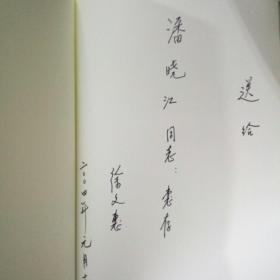 送给
潘晓江同志：惠存
徐文惠
二〇〇四年元月十